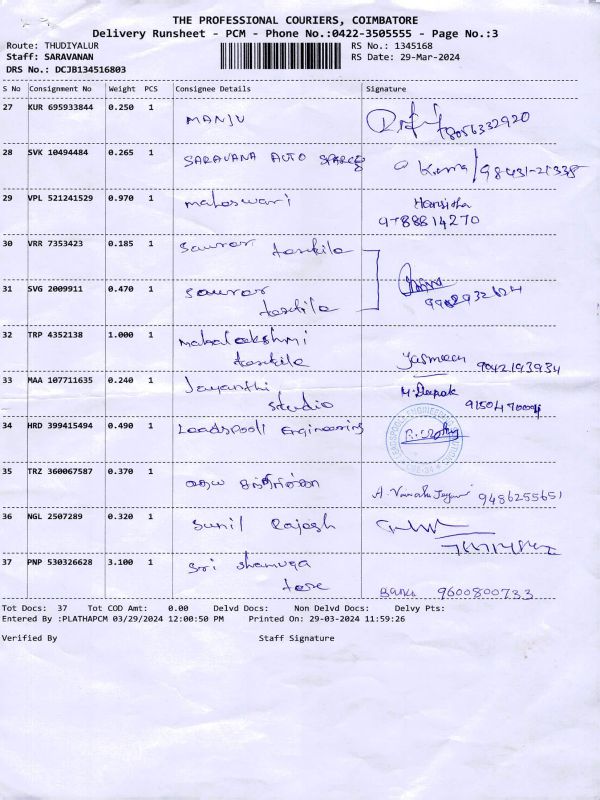 THE PROFESSIONAL COURIERS, COIMBATORE
Delivery Runsheet - PCM - Phone No.:0422-3505555 - Page No.:3
Route: THUDIYALUR RS No.: 1345168
Staff: SARAVANAN RS Date: 29-Mar-2024
DRS No.: DCJB134516803
S No Consignment No Weight PCS Consignee Details Signature
27 KUR 695933844 0.250 1 MANJU 8056332920
28 SVK 10494484 0.265 1 SARAVANA AUTO SPARES 98431-21338
29 VPL 521241529 0.970 1 maheswari Harsitha
9788814270
30 VRR 7353423 0.185 1 textile
31 SVG 2009911 0.470 1
textile
32 TRP 4352138 1.000 1 mahalakshmi
textile Yasmeen 9042193934
33 MAA 107711635 0.240 1 Jayanthi M. Deepak
studio
34 HRD 399415494 0.490 1 Leadspool Engineering
35 TRZ 360067587 0.370 1 9486255651
36 NGL 2507289 0.320 1 Sunil Rajesh
37 PNP 530326628 3.100 1 Sri
Banu 9600800733
Tot Docs: 37 Tot COD Amt: 0.00 Delvd Docs: Non Delvd Docs: Delvy Pts:
Entered By :PLATHAPCM 03/29/2024 12:00:50 PM Printed On: 29-03-2024 11:59:26
Verified By Staff Signature